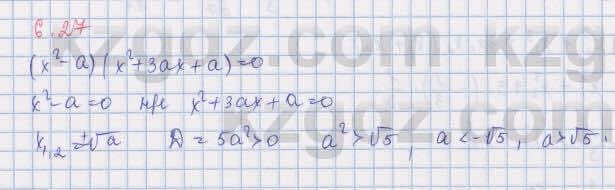 6.27
(x²-a)(x²+3ax+a)=0
x²-a=0 не x²+3ax+a=0
x₁,₂=±√a D=5a²>0 a²>√5, a<-√5, a>√5.
kzgdz.com kzg